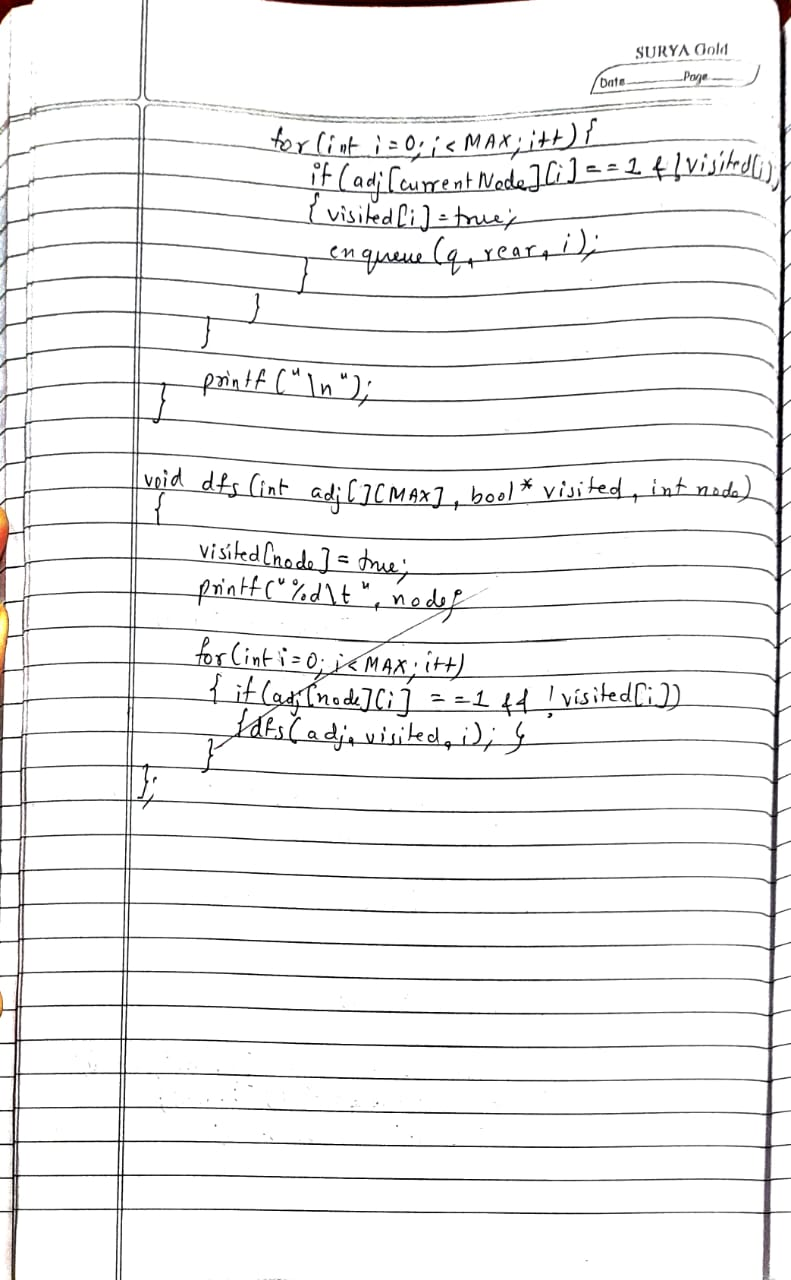 SURYA Gold
Date Page
for (int i = 0; i < MAX; i++) {
if (adj[currentNode][i] == 1 & !visited[i])
{ visited[i] = true;
enqueue (q, rear, i);
}
}
}
printf ("\n");
}
void dfs (int adj[][MAX], bool* visited, int node)
{
visited[node] = true;
printf("%d\t", node)
for (int i = 0; i < MAX; i++)
{ if (adj[node][i] == 1 && !visited[i])
{ dfs(adj, visited, i); }
}
};